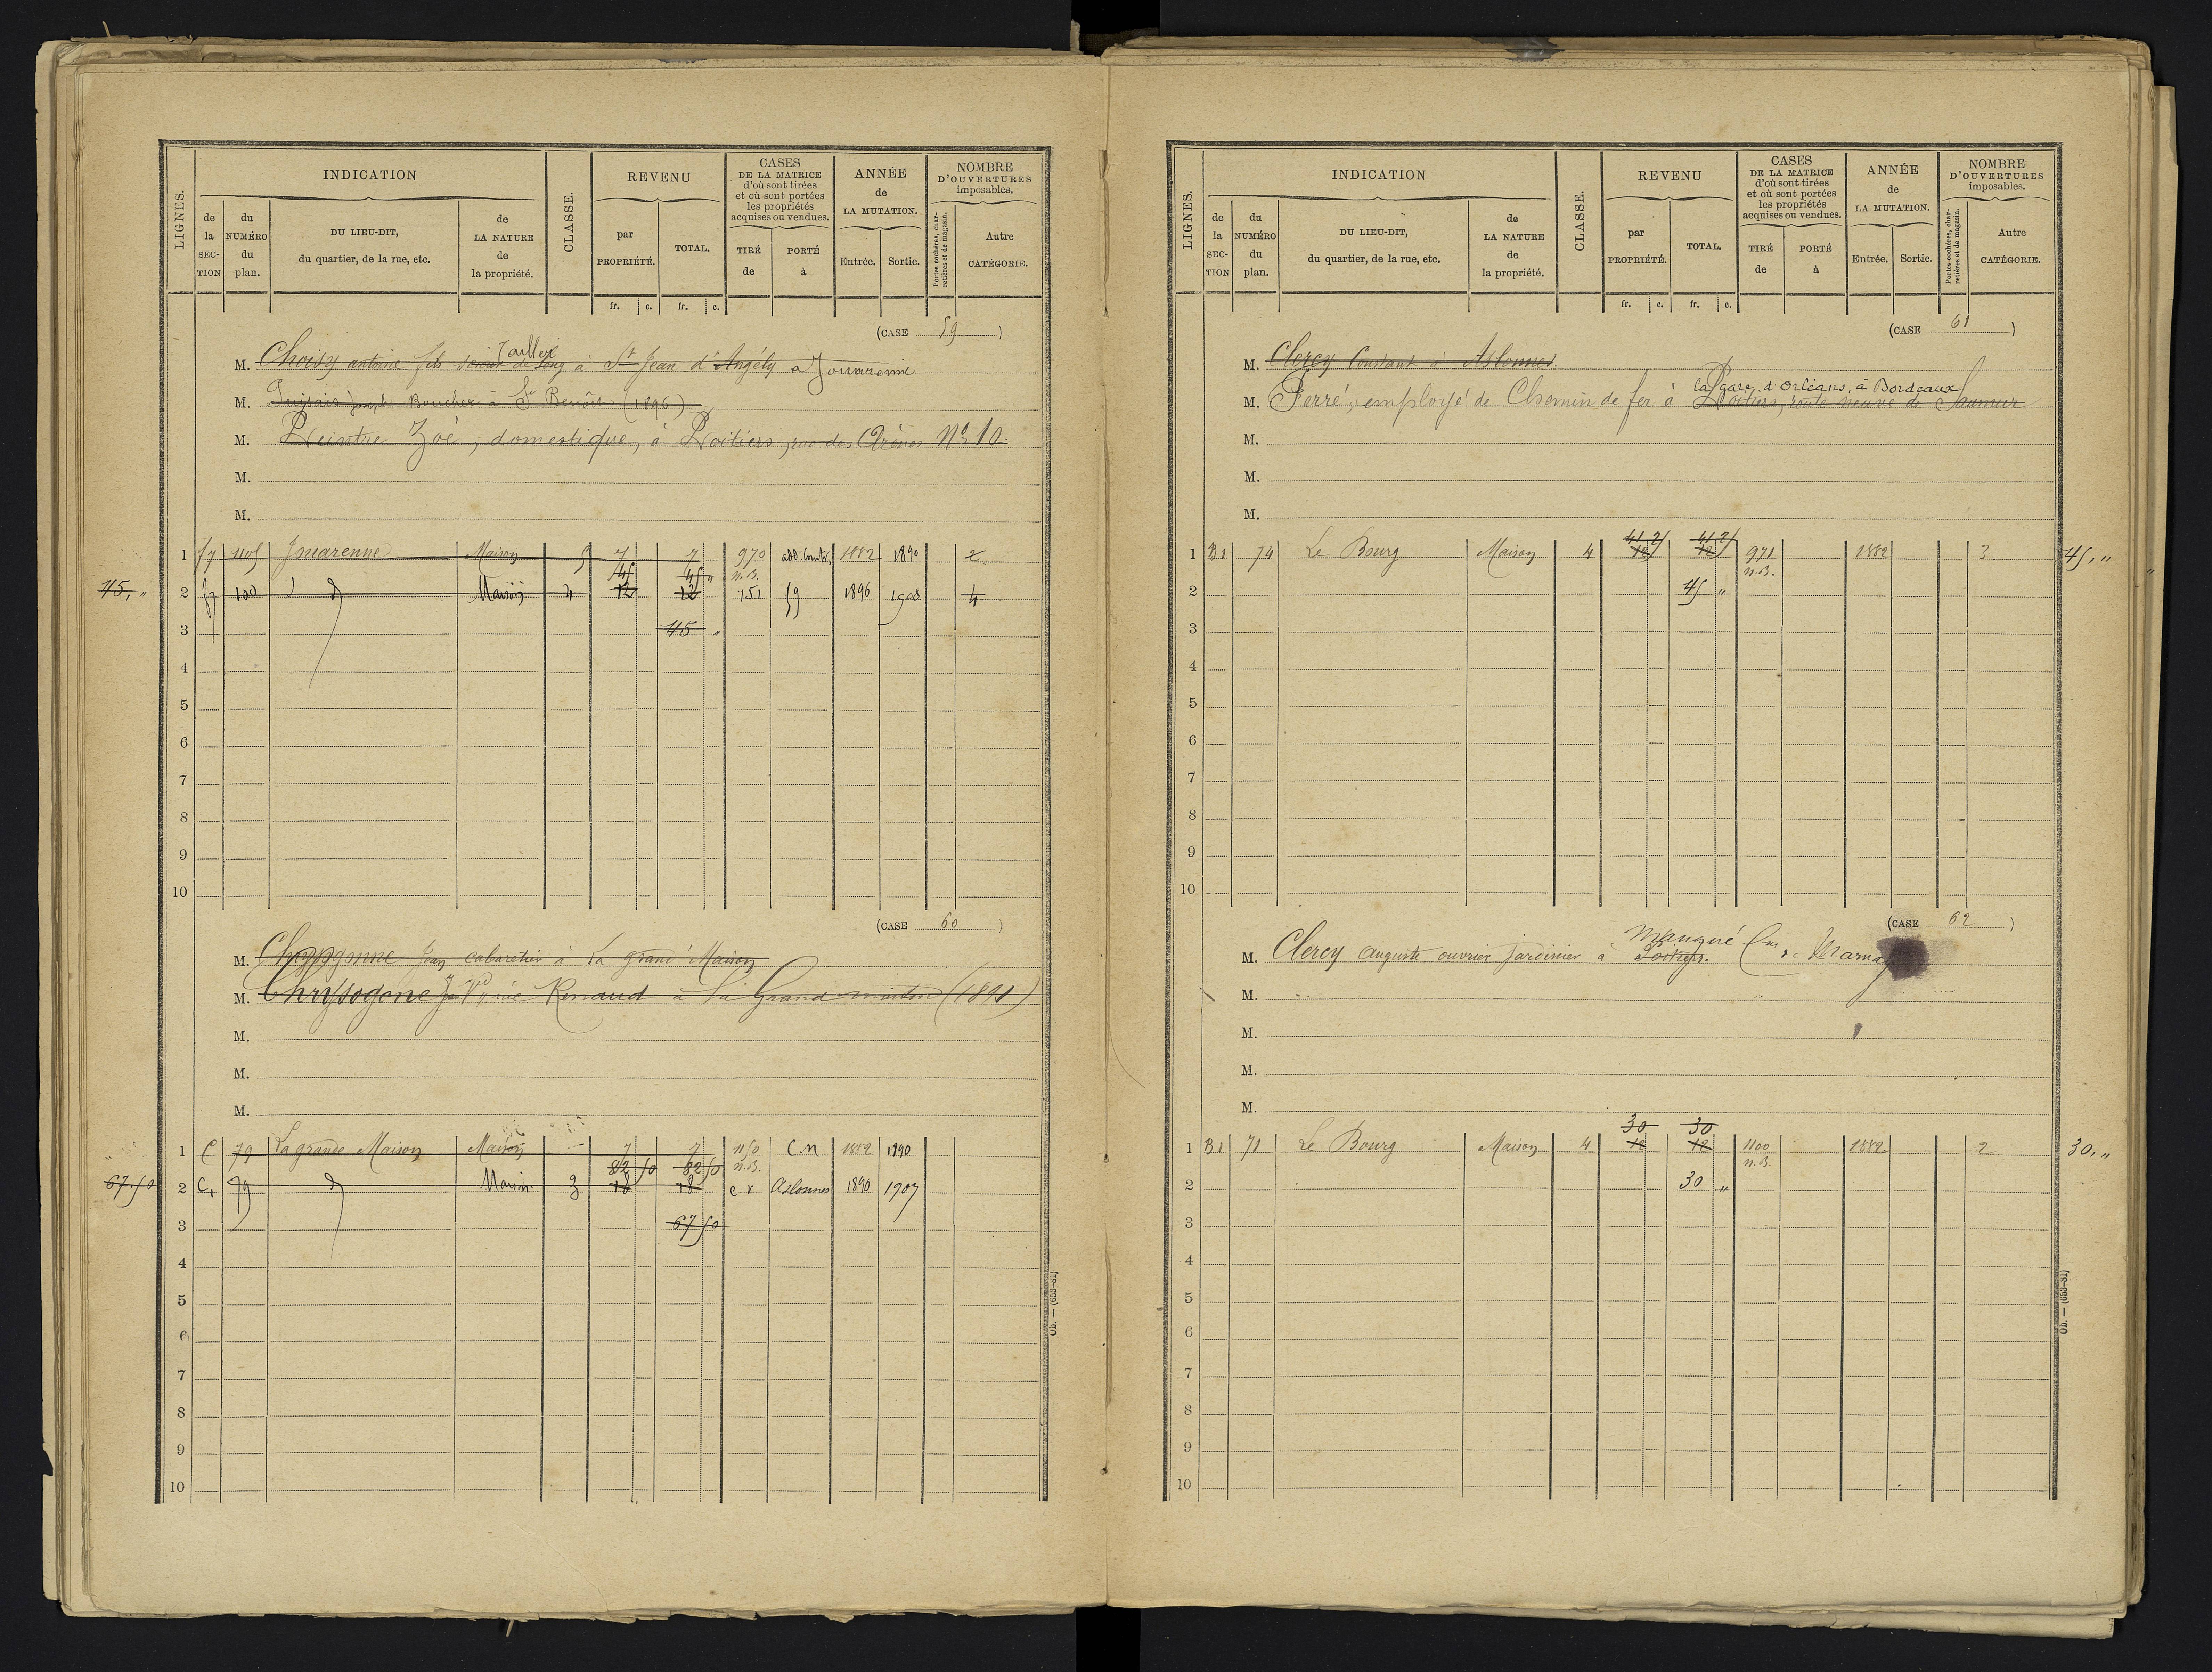 LIGNES.
INDICATION
de la SECTION
du NUMÉRO du plan.
DU LIEU-DIT, du quartier, de la rue, etc.
de LA NATURE de la propriété.
CLASSE.
REVENU
par PROPRIÉTÉ.
TOTAL.
CASES DE LA MATRICE d'où sont tirées et où sont portées les propriétés acquises ou vendues.
TIRÉ de
PORTÉ à
ANNÉE de LA MUTATION.
Entrée.
Sortie.
NOMBRE D'OUVERTURES imposables.
Portes cochères, charretières et de magasin.
Autre CATÉGORIE.
fr. c. fr. c.
(CASE 59)
Tailleur
M. Choisy antoine fils à St Jean d'Angély a
M. Joseph Boucher à St Benôit (1896)
M. Peintre Zoé, domestique, à Poitiers, rue des Arènes No 10.
M.
M.
1 1105 Maison 5 7 7 970 1882 1890 2
45 45 " n.B.
45, " 2 100 d Maison 4 12 12 151 59 1896 1908 4
3 45 "
4
5
6
7
8
9
10
(CASE 60)
M. Jean cabaretier à la grand Maison
M. Chrysogone Jean Ve née Renaud à la Grand maison (1891)
M.
M.
M.
1 C 79 La grande Maison Maison 7 7 1150 C.N 1882 1890
82 50 82 50 n.B.
67,50 2 C1 79 d Maison 3 18 18 c.r Aslonnes 1890 1907
3 67 50
4
5
6
7
8
9
10
Ob. — (663-81)
LIGNES.
INDICATION
de la SECTION
du NUMÉRO du plan.
DU LIEU-DIT, du quartier, de la rue, etc.
de LA NATURE de la propriété.
CLASSE.
REVENU
par PROPRIÉTÉ.
TOTAL.
CASES DE LA MATRICE d'où sont tirées et où sont portées les propriétés acquises ou vendues.
TIRÉ de
PORTÉ à
ANNÉE de LA MUTATION.
Entrée.
Sortie.
NOMBRE D'OUVERTURES imposables.
Portes cochères, charretières et de magasin.
Autre CATÉGORIE.
fr. c. fr. c.
(CASE 61)
M. Clercy Constant à Aslonnes.
la gare d'Orléans, à Bordeaux
M. Ferré, employé de Chemin de fer à Poitiers, route neuve de Saumur
M.
M.
M.
41 2/ 41 2/
1 B1 74 Le Bourg Maison 4 12 12 971 1882 3 45, "
n.B.
2 45 "
3
4
5
6
7
8
9
10
(CASE 62)
M. Clercy auguste ouvrier jardinier à Poitiers. Mangué Cne de
M.
M.
M.
M.
30 30
1 B1 71 Le Bourg Maison 4 12 12 1100 1882 2 30, "
n.B.
2 30 "
3
4
5
6
7
8
9
10
Ob. — (663-81)